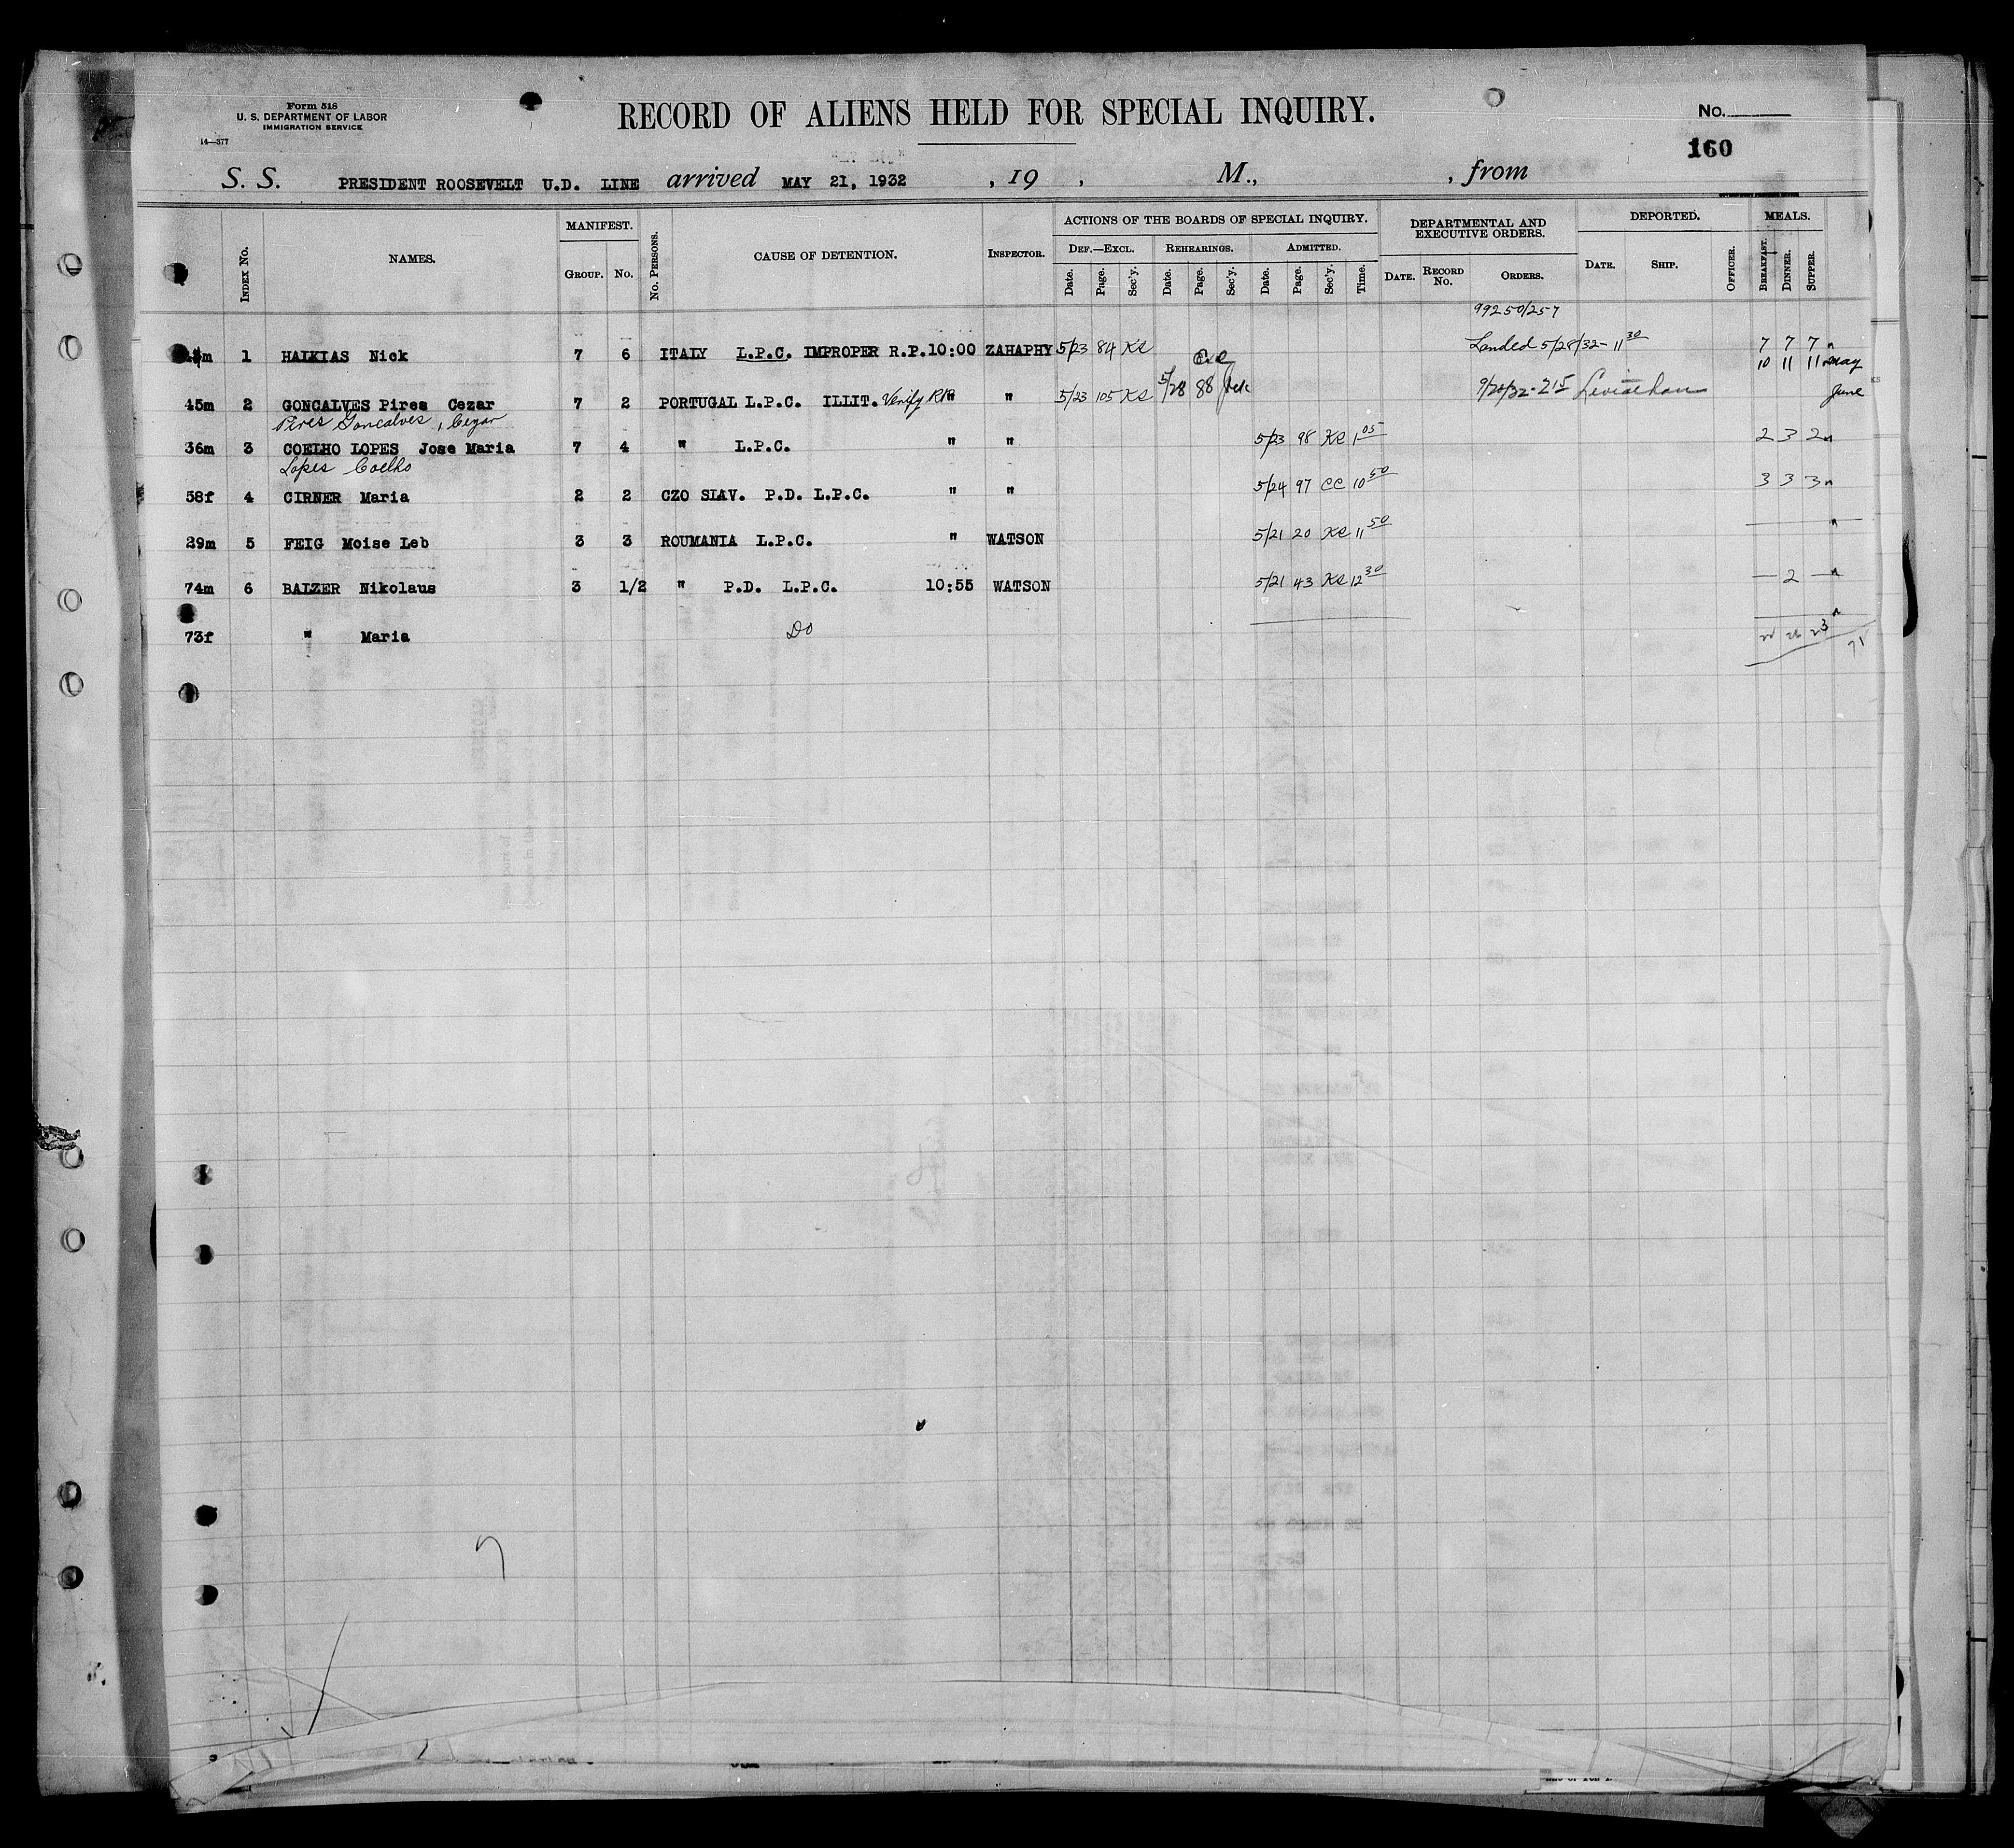 Form 516
U. S. DEPARTMENT OF LABOR
IMMIGRATION SERVICE
14—377
RECORD OF ALIENS HELD FOR SPECIAL INQUIRY.
No.
160
S. S. PRESIDENT ROOSEVELT U.D. LINE arrived MAY 21, 1932 , 19 , M., , from
INDEX No. NAMES. MANIFEST. GROUP. No. No. PERSONS. CAUSE OF DETENTION. INSPECTOR. ACTIONS OF THE BOARDS OF SPECIAL INQUIRY. DEF.—EXCL. Date. Page. Sec'y. REHEARINGS. Date. Page. Sec'y. ADMITTED. Date. Page. Sec'y. Time. DEPARTMENTAL AND EXECUTIVE ORDERS. DATE. RECORD No. ORDERS. DEPORTED. DATE. SHIP. OFFICER. MEALS. BREAKFAST. DINNER. SUPPER.
99250/257
1 HAIKIAS Nick 7 6 ITALY L.P.C. IMPROPER R.P. 10:00 ZAHAPHY 5/23 84 KS Landed 5/28/32 - 11 30 7 7 7
Exc 10 11 11 May
45m 2 GONCALVES Pires Cezar 7 2 PORTUGAL L.P.C. ILLIT. Verify RP " " 5/23 105 KS 5/28 88 9/20/32 - 2 15 Leviathan June
Pires Goncalves, Cezar
36m 3 COELHO LOPES Jose Maria 7 4 " L.P.C. " " 5/23 98 KS 1 05 2 3 2
Lopes Coelho
58f 4 CIRNER Maria 2 2 CZO SIAV. P.D. L.P.C. " " 5/24 97 CC 10 50 3 3 3
29m 5 FEIG Moise Leb 3 3 ROUMANIA L.P.C. " WATSON 5/21 20 KS 11 50
74m 6 BALZER Nikolaus 3 1/2 " P.D. L.P.C. 10:55 WATSON 5/21 43 KS 12 30 — 2 —
73f " Maria Do
71